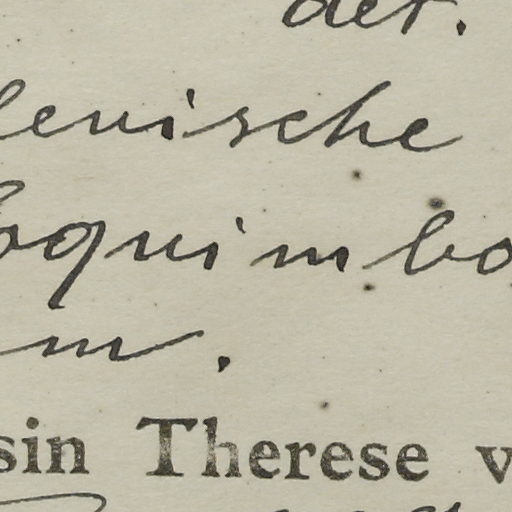 det.
lenische
oquimbo
m.
sin Therese v